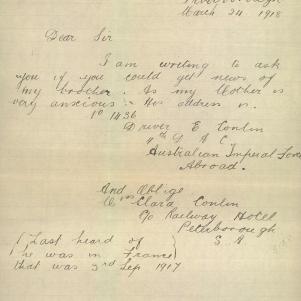 March 24 1918
Dear Sir
I am writing to ask
you if you could get news of
my brother. As my Mother is
very anxcious. His address is.
No 1436
Driver E Conlin
4th D A C
Australian Imperial Force
Abroad.
And Oblige
Clara Conlin
C/o Railway Hotel
Peterborough
S A
(Last heard of
he was in France)
that was 3rd Sep 1917